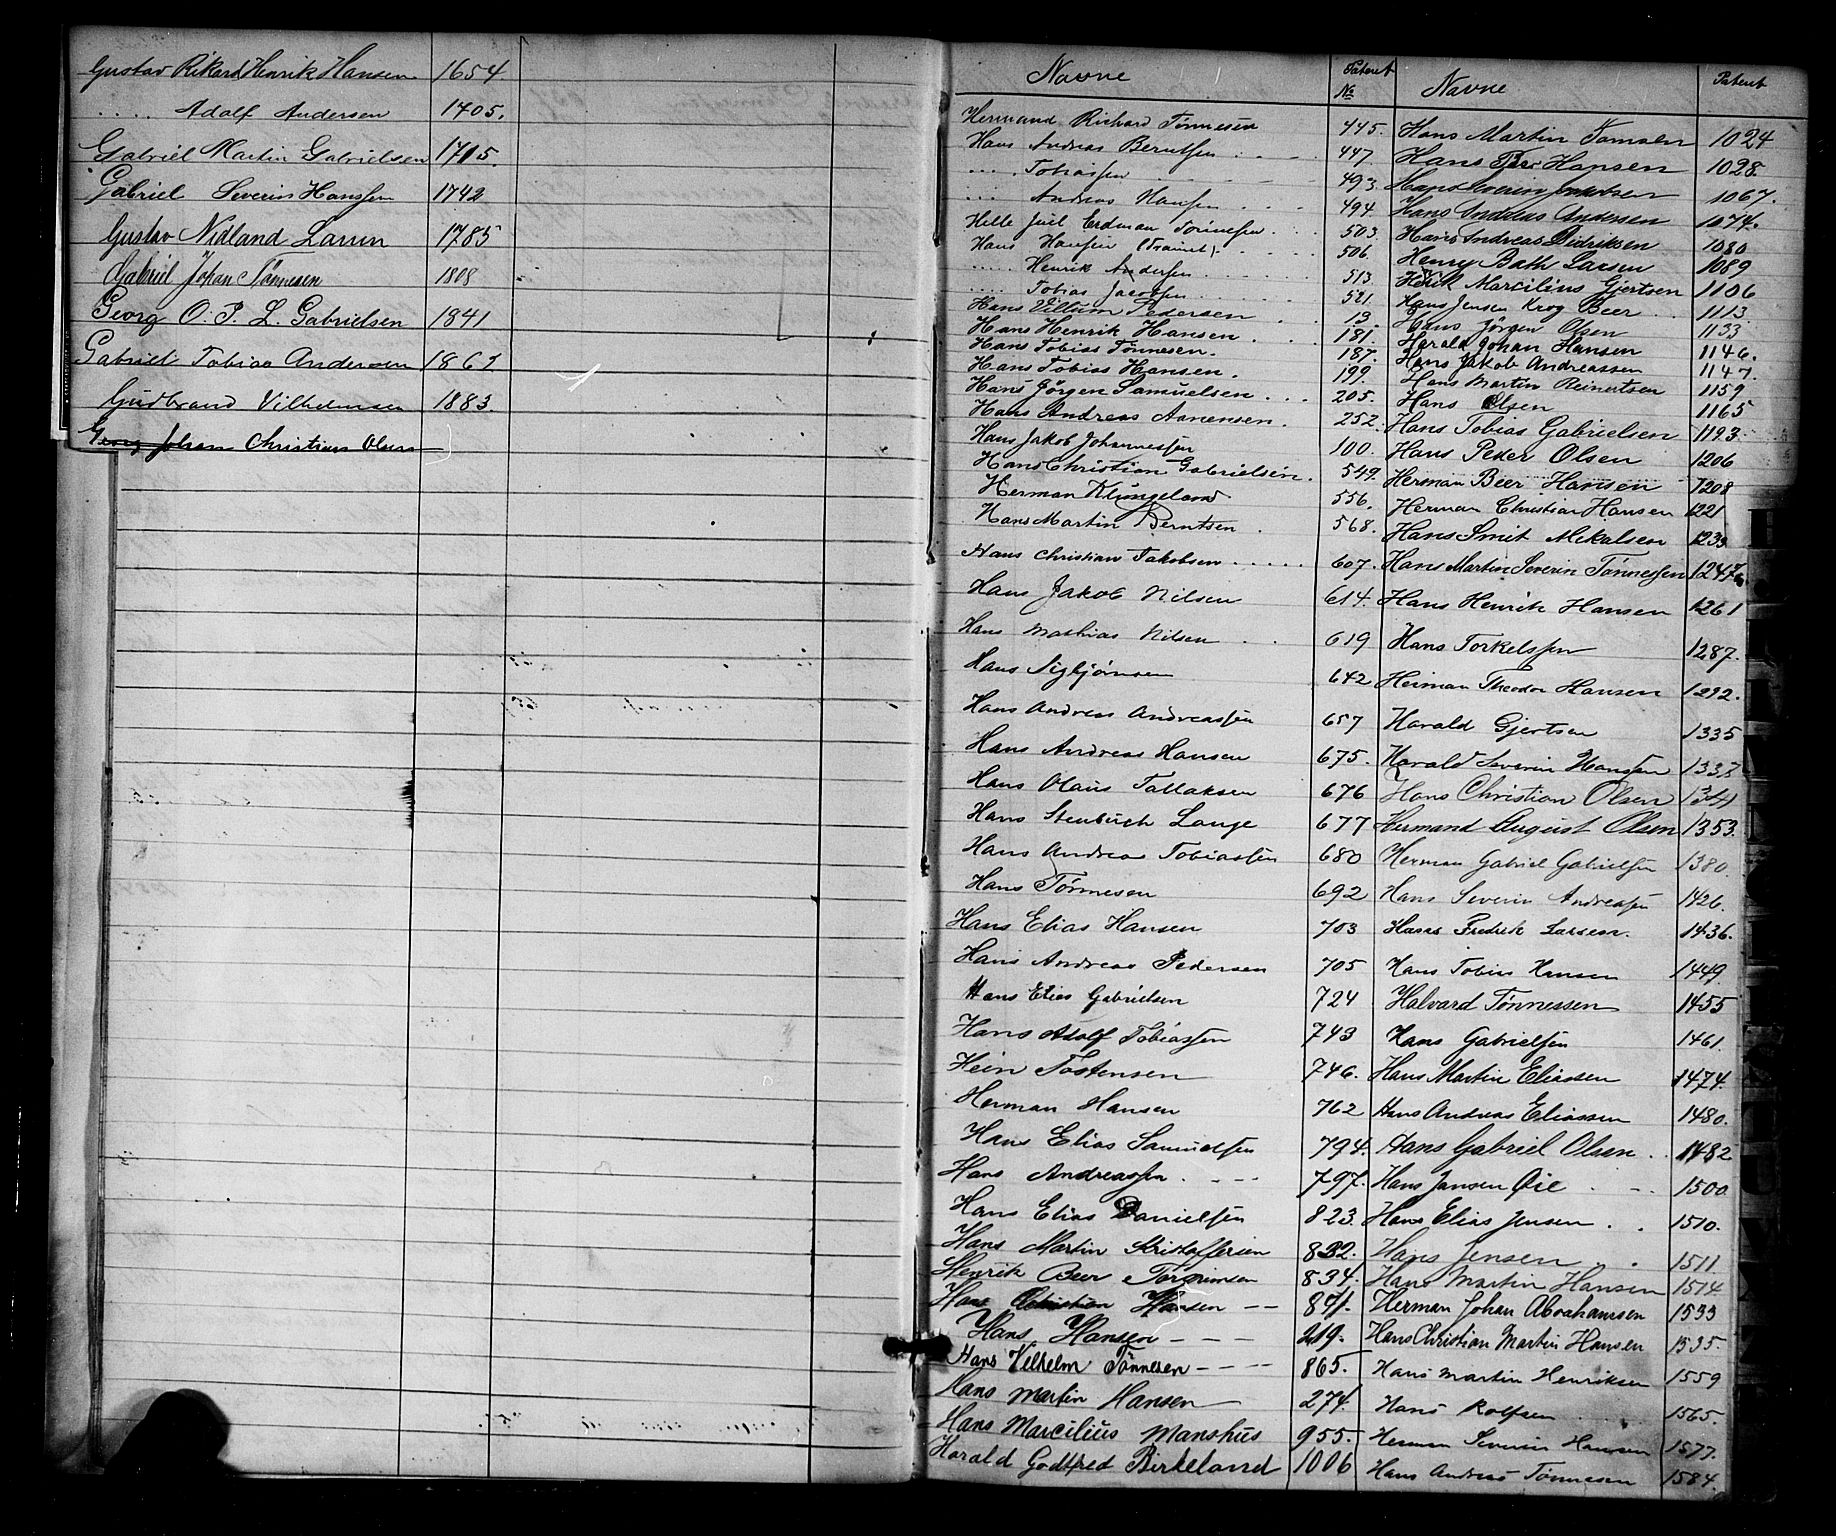 Gustav Rikard Henrik Hansen 1654
.... Adolf Andersen 1705.
Gabriel Martin Gabrielsen 1715.
Gabriel Severin Hanssen 1742
Gustav Nidland Larsen 1785
Gabriel Johan Tønnesen 1808
Georg O. P. L. Gabrielsen 1841
Gabriel Tobias Andersen 1861
Gudbrand Vilhelmsen 1883.
Georg Johan Christian Olsen
Navne Patent No
Hermand Richard Tønnesen 445.
Hans Andreas Berntsen 447.
.... Tobiassen 493.
.... Andreas Hansen 494.
Helle Juel Erdman Tønnesen 503.
Hans Hansen 506.
.... Henrik Andersen 513.
.... Tobias Jacobsen 521.
Hans Villum Pedersen 13
Hans Henrik Hansen 181.
Hans Tobias Tønnesen. 187.
Hans Tobias Hansen. 199.
Hans Jørgen Samuelsen 205.
Hans Andreas Aanensen. 252.
Hans Jakob Johannessen 100.
Hans Christian Gabrielsen. 549.
Herman Klungeland 556.
Hans Martin Berntsen 568.
Hans Christian Jakobsen 607.
Hans Jakob Nilsen 614.
Hans Mathias Nilsen 619
Hans Sigbjørnsen 642
Hans Andreas Andreassen 657
Hans Andreas Hansen 675.
Hans Olaus Tallaksen 676
Hans Stenbuch Lange 677
Hans Andreas Tobiassen 680
Hans Tønnesen 692
Hans Elias Hansen 703
Hans Andreas Pedersen 705
Hans Elias Gabrielsen 724
Hans Adolf Tobiassen 743
Hein Tostensen 746.
Herman Hansen 762
Hans Elias Samuelsen 794.
Hans Andreassen 797.
Hans Elias Danielsen 823.
Hans Martin Kristoffersen 832.
Henrik Beer Torgrimsen 834.
Hans Christian Hansen 841.
Hans Hansen 219.
Hans Vilhelm Tønnesen 865.
Hans Martin Hansen 274.
Hans Marcilius Manshus 955.
Harald Godtfred Birkeland 1006
Navne Patent
Hans Martin Tomsen 1024
Hans Peer Hansen 1028.
Hans Severin Jakobsen 1067.
Hans Andreas Andersen 1074.
Hans Andreas Didriksen 1080
Henry Bath Larsen 1089
Henrik Marcilius Gjertsen 1106
Hans Jensen Krog Beer 1113
Hans Jørgen Olsen 1133
Harald Johan Hansen 1146.
Hans Jakob Andreassen 1147.
Hans Martin Reinertsen 1159
Hans Olsen 1165
Hans Tobias Gabrielsen 1193.
Hans Peder Olsen 1206
Herman Beer Hansen 1208
Herman Christian Hansen 1221
Hans Smit Mikalsen 1233
Hans Martin Severin Tønnessen 1247.
Hans Henrik Hansen 1261
Hans Torkelssen 1287.
Herman Theodor Hansen 1292.
Harald Gjertsen 1335
Harald Severin Hansen 1337
Hans Christian Olsen 1341
Hermand August Olsen 1353.
Herman Gabriel Gabrielsen 1380.
Hans Severin Andreassen 1426.
Hans Fredrik Larsen. 1436.
Hans Tobias Hansen 1449.
Halvard Tønnessen 1455
Hans Gabrielsen 1461.
Hans Martin Eliassen 1474.
Hans Andreas Eliassen 1480.
Hans Gabriel Olsen 1482
Hans Jansen Øie 1500
Hans Elias Jensen 1510.
Hans Jensen 1511
Hans Martin Hansen 1514
Herman Johan Abrahamsen 1533
Hans Christian Martin Hansen 1535.
Hans Martin Henriksen 1559
Hans Rolfsen 1565.
Herman Severin Hansen 1577.
Hans Andreas Tønnesen 1584.